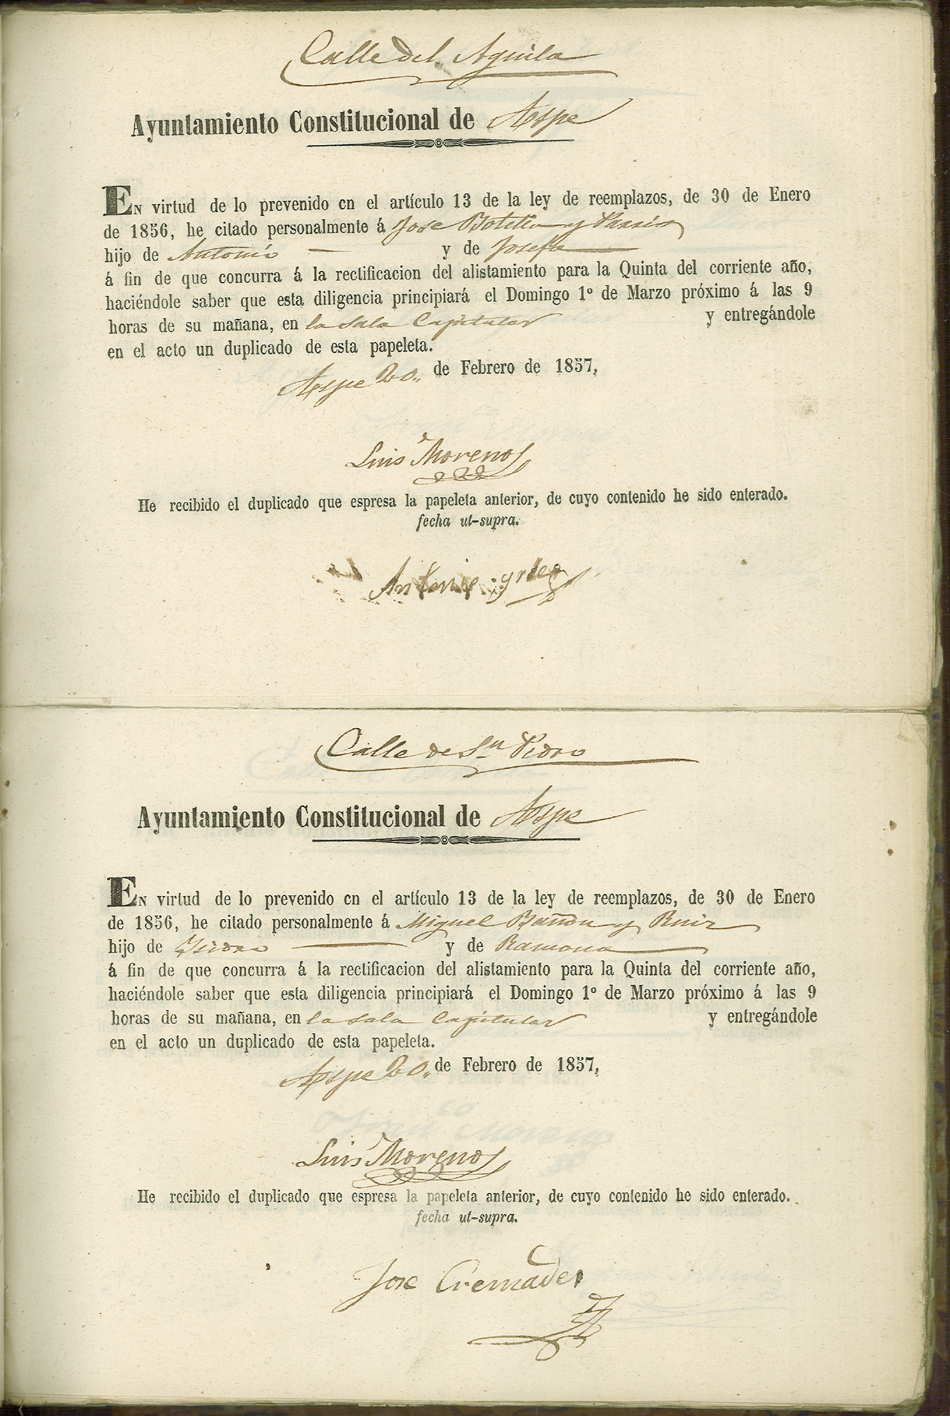 Calle del Aguila
Ayuntamiento Constitucional de Aspe
EN virtud de lo prevenido en el artículo 13 de la ley de reemplazos, de 30 de Enero
de 1856, he citado personalmente á Jose Botella y
hijo de Antonio y de Josefa
á fin de que concurra á la rectificacion del alistamiento para la Quinta del corriente año,
haciéndole saber que esta diligencia principiará el Domingo 1º de Marzo próximo á las 9
horas de su mañana, en la Sala Capitular y entregándole
en el acto un duplicado de esta papeleta.
Aspe 20 de Febrero de 1857,
Luis Moreno
He recibido el duplicado que espresa la papeleta anterior, de cuyo contenido he sido enterado.
fecha ut-supra.
Antonio
Calle de Sn Pedro
Ayuntamiento Constitucional de Aspe
EN virtud de lo prevenido en el artículo 13 de la ley de reemplazos, de 30 de Enero
de 1856, he citado personalmente á Miguel Bañon y Ruiz
hijo de Ysidro y de Ramona
á fin de que concurra á la rectificacion del alistamiento para la Quinta del corriente año,
haciéndole saber que esta diligencia principiará el Domingo 1º de Marzo próximo á las 9
horas de su mañana, en la Sala Capitular y entregándole
en el acto un duplicado de esta papeleta.
Aspe 20 de Febrero de 1857,
Luis Moreno
He recibido el duplicado que espresa la papeleta anterior, de cuyo contenido he sido enterado.
fecha ut-supra.
Jose Cremades